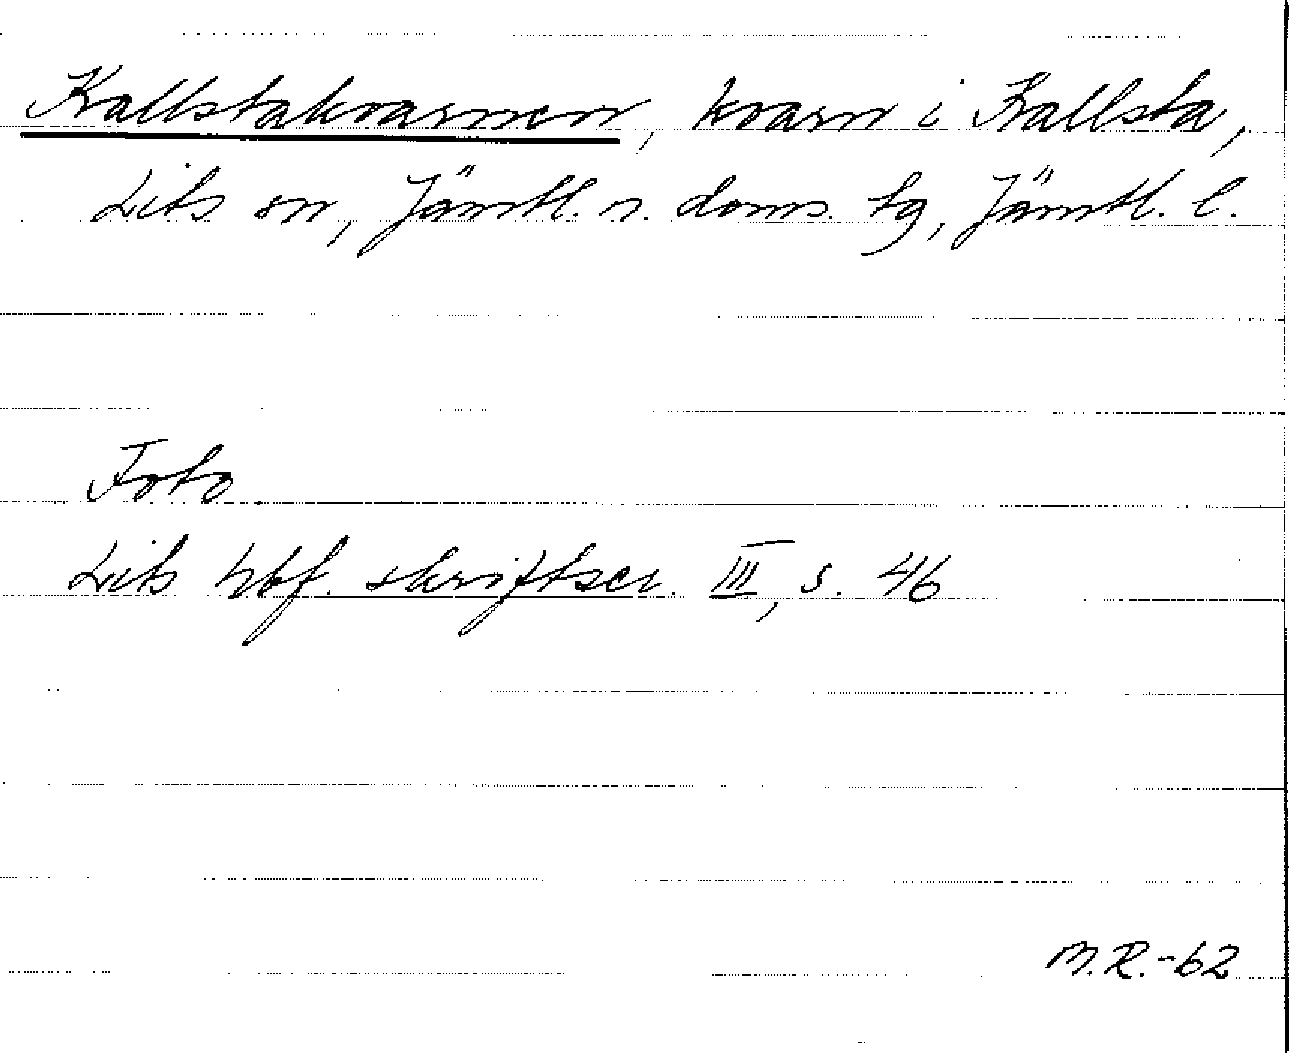 Kallstakvarnen, kvarn i Kallsta,
Lits sn, Jämtl. n. doms. tg, Jämtl. l.
Foto
Lits hbf. skriftser. III, s. 46
M.R.-62